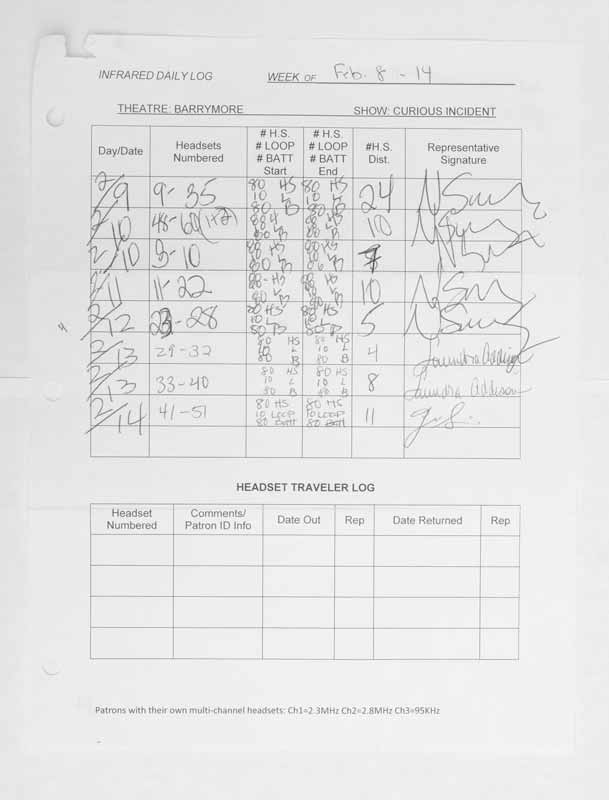 INFRARED DAILY LOG WEEK OF Feb. 8 - 14
THEATRE: BARRYMORE SHOW: CURIOUS INCIDENT
Day/Date Headsets Numbered # H.S. # LOOP # BATT Start # H.S. # LOOP # BATT End #H.S. Dist. Representative Signature
2/9 9-35 80 HS 10 L 80 B 80 HS 10 L 80 B 24
2/10 48-60 10
2/10 80 HS
2/11 11-22 80 HS 10 L 80 B 80 HS 10 L 80 B 10
2/12 -28 80 HS 10 L 80 B 80 HS 10 L 80 B 5
2/13 29-32 80 HS 10 L 80 B 80 HS 10 L 80 B 4 Laundra Addison
2/13 33-40 80 HS 10 L 80 B 80 HS 10 L 80 B 8 Laundra Addison
2/14 41-51 80 HS 10 LOOP 80 Batt 80 HS 10 LOOP 80 Batt 11
HEADSET TRAVELER LOG
Headset Numbered Comments/ Patron ID Info Date Out Rep Date Returned Rep
Patrons with their own multi-channel headsets: Ch1=2.3MHz Ch2=2.8MHz Ch3=95KHz